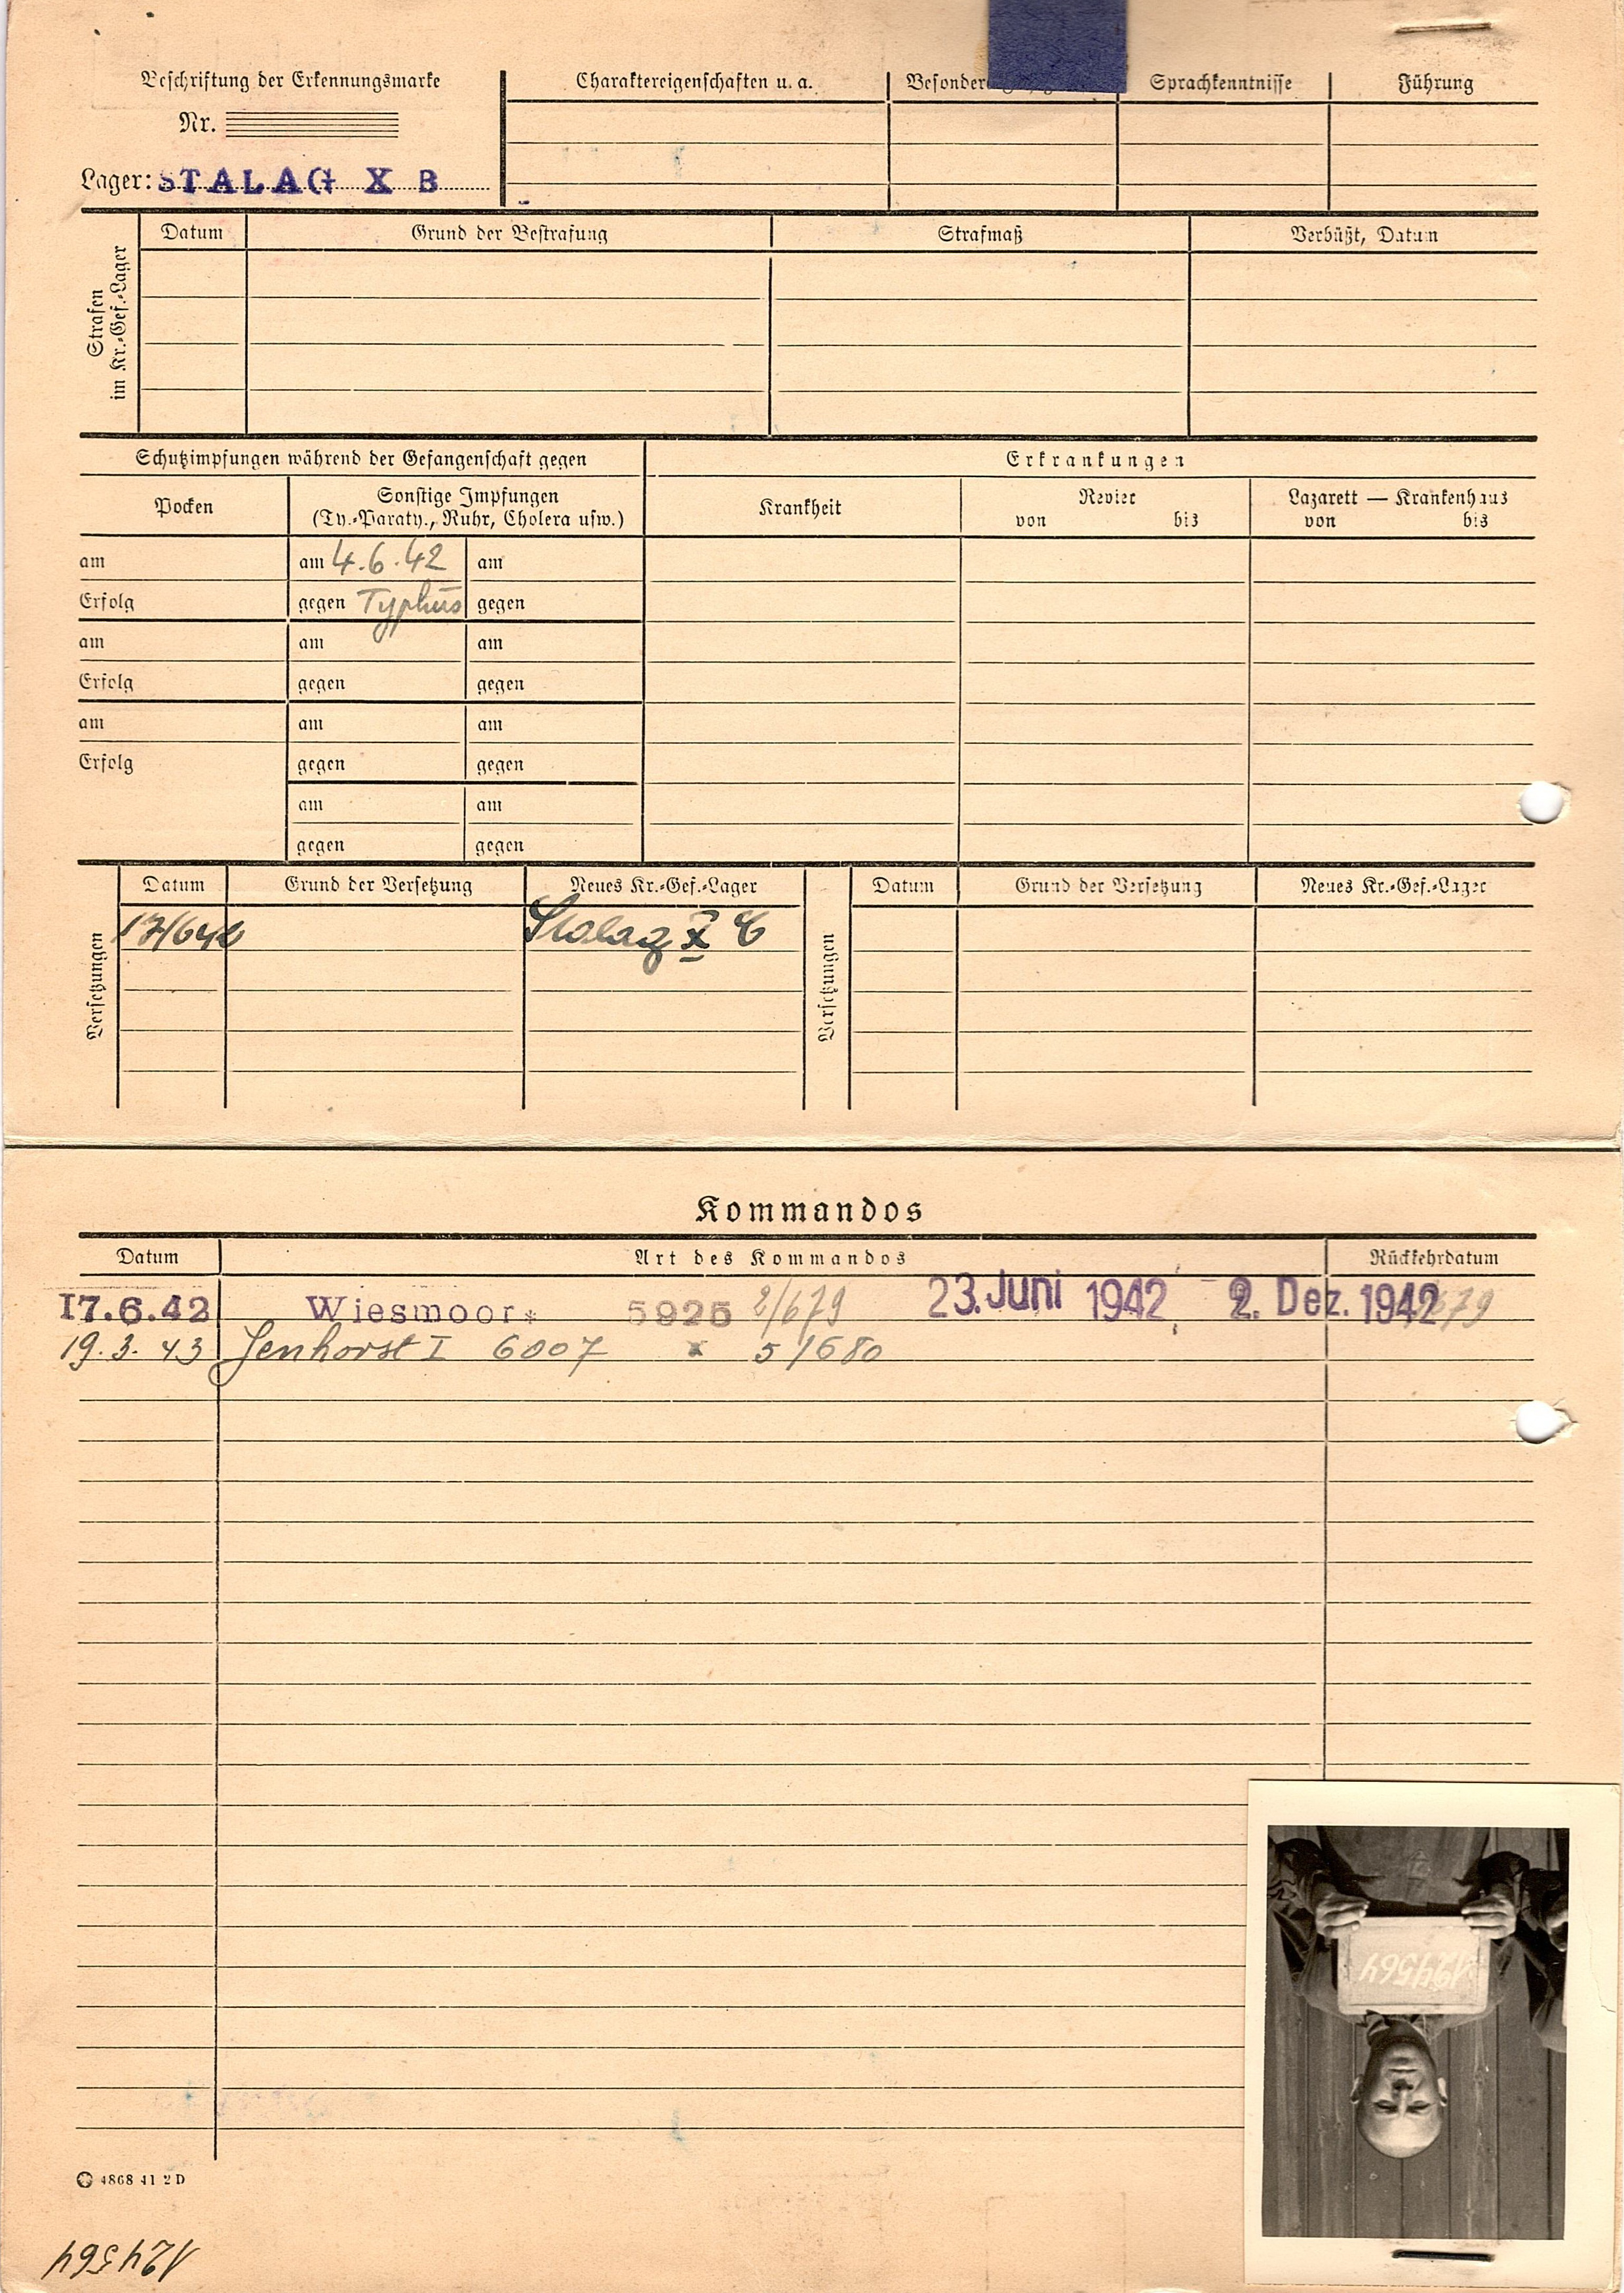 Beschriftung der Erkennungsmarke
Nr.
Lager: STALAG X B
Charaktereigenschaften u. a.
Sprachkenntnisse
Führung
Strafen
im Kr.-Gef.-Lager
Datum
Grund der Bestrafung
Strafmaß
Verbüßt, Datum
Schutzimpfungen während der Gefangenschaft gegen
Erkrankungen
Pocken
Sonstige Impfungen
(Ty.-Paraty., Ruhr, Cholera usw.)
Krankheit
Revier
von bis
Lazarett — Krankenhaus
von bis
am am 4.6.42 am
Erfolg gegen Typhus gegen
am am am
Erfolg gegen gegen
am am am
Erfolg gegen gegen
am am
gegen gegen
Versetzungen
Datum Grund der Versetzung Neues Kr.-Gef.-Lager
17/642 Stalag X C
Versetzungen
Datum Grund der Versetzung Neues Kr.-Gef.-Lager
Kommandos
Datum Art des Kommandos Rückkehrdatum
17.6.42 Wiesmoor* 5925 2/679 23. Juni 1942 - 2. Dez. 1942 679
19.3.43 Jenhorst I 6007 x 5/680
4868 41 2 D
124564
124564